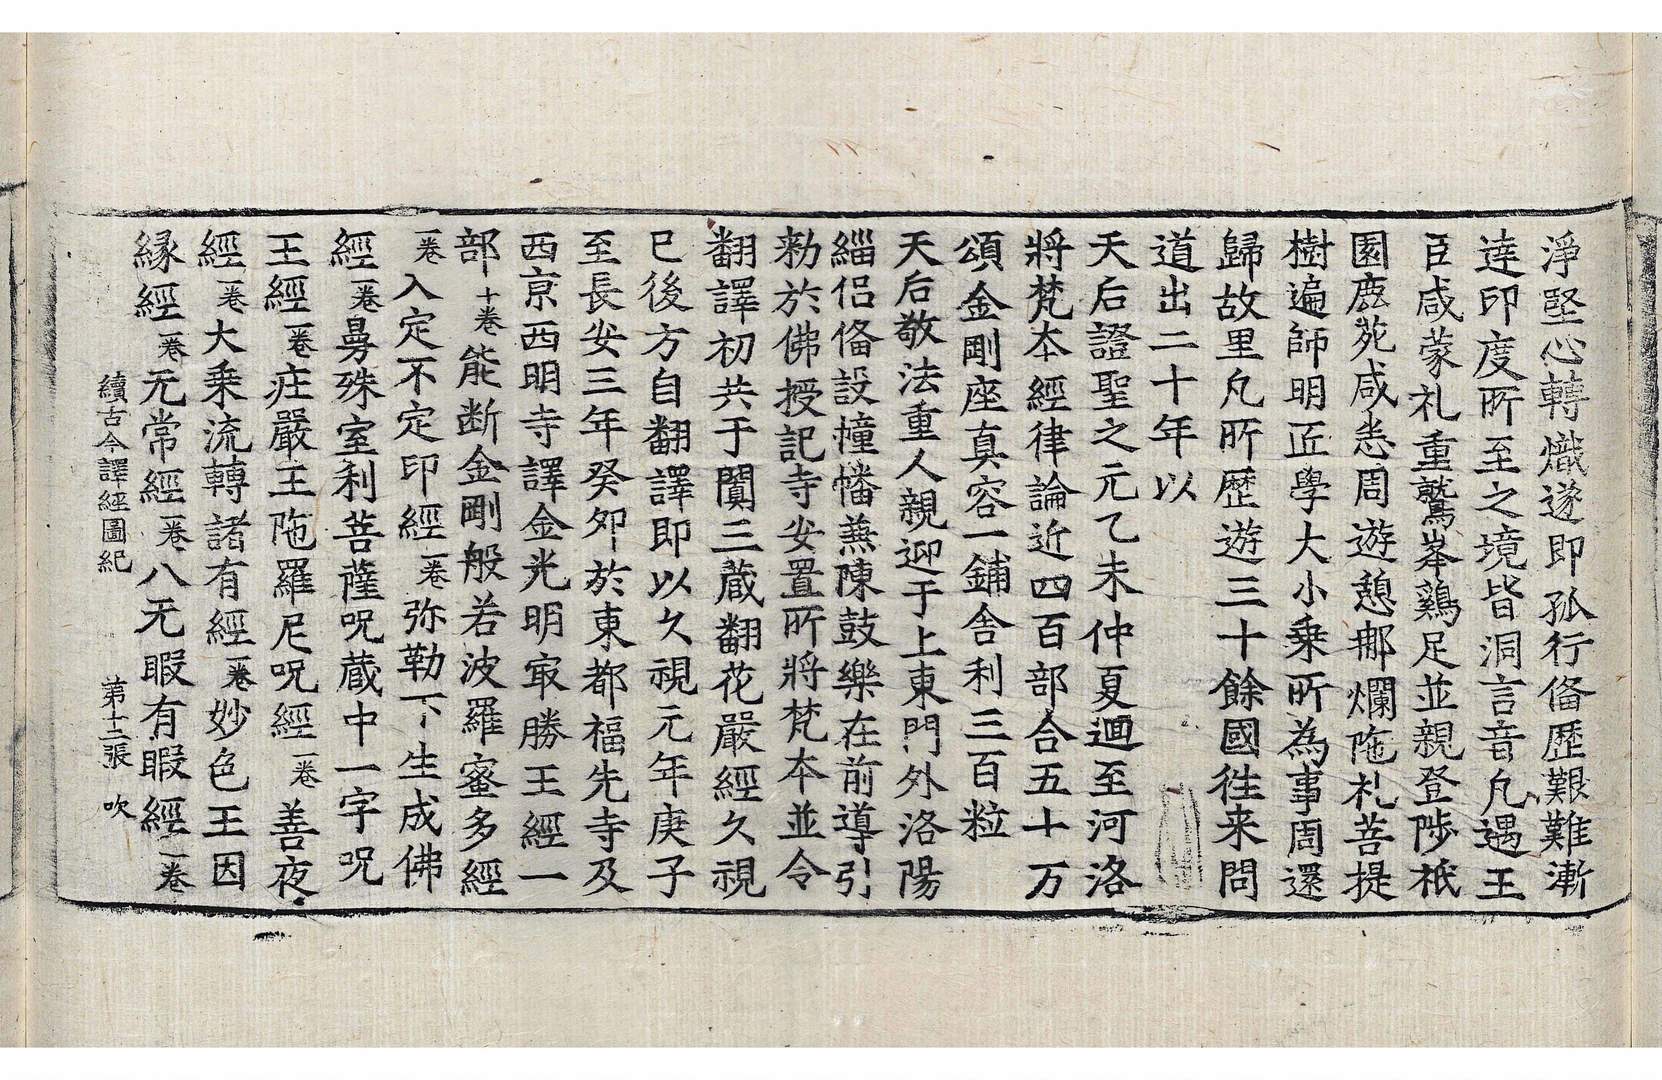 淨堅心轉熾遂即孤行俻歷艱難漸
達印度所至之境皆洞言音凡遇王
臣咸蒙礼重鷲峯鷄足並親登陟祇
園鹿苑咸悉周遊憩𨙻爛陁礼菩提
樹遍師明匠學大小乘所為事周還
歸故里凡所歷遊三十餘國徃来問
道出二十年以
天后證聖之元乙未仲夏迴至河洛
將梵夲經律論近四百部合五十万
頌金剛座真容一鋪舍利三百粒
天后敬法重人親迎于上東門外洛陽
緇侶俻設幢幡𠔥陳鼓樂在前導引
勑於佛授記寺安置所將梵夲並令
翻譯初共于闐三藏翻花嚴經久視
巳後方自翻譯即以久視元年庚子
至長安三年癸夘於東都福先寺及
西京西明寺譯金光明㝡勝王經一
部十卷能断金剛般若波羅蜜多經
一卷入定不定印經一卷弥勒下生成佛
經一卷曼殊室利菩薩呪藏中一字呪
王經一卷庄嚴王陁羅尼呪經一卷善夜
經一卷大乘流轉諸有經一卷妙色王因
縁經一卷无常經一卷八无暇有暇經一卷
續古今譯經圖紀 第十二張 吹